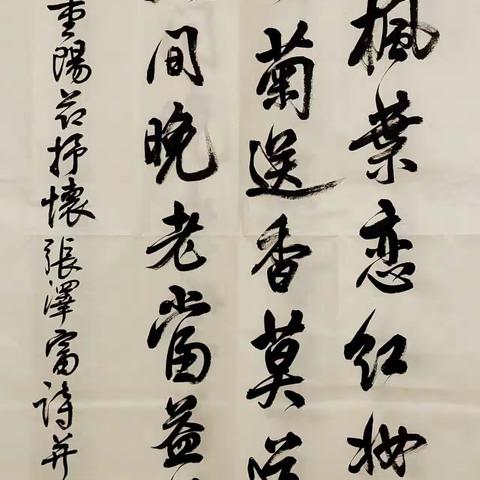 枫葉恋红妆
菊送香莫道
间晚老当益
重陽节抒懷張澤富詩并